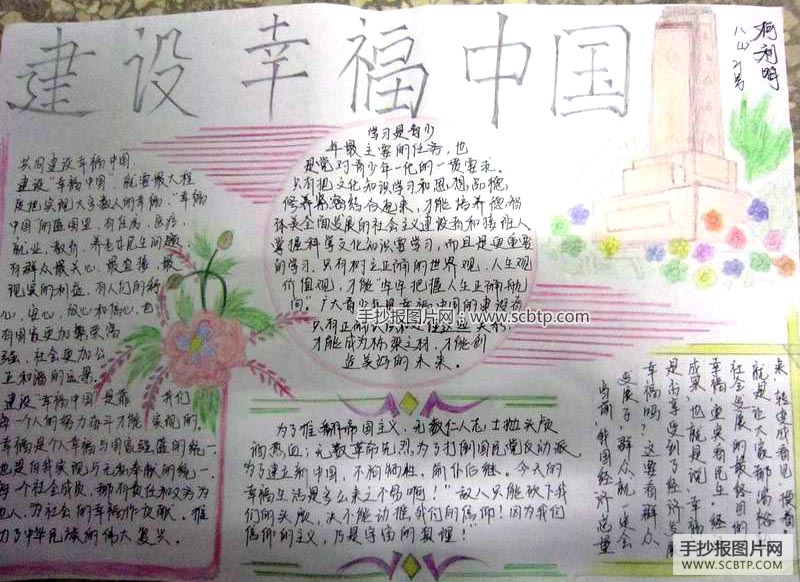 建设幸福中国
柯利明
共同建设幸福中国
建设“幸福中国”就要最大程
度地实现大多数人的幸福。“幸福
中国”的蓝图里,有住房、医疗、
就业、教育、养老等民生问题,
有群众最关心、最直接、最
现实的利益,有人们的称
心、安心、放心和信心,也
有国家更加繁荣富
强、社会更加公
正和谐的远景。
建设“幸福中国”是靠我们
每一个人的努力奋斗才能实现的。
幸福是个人幸福与国家强盛的统一
也是自我实现与无私奉献的统一,
每个社会成员,都有责任和义务为
他人、为社会的幸福作贡献,推
动了中华民族的伟大复兴。
学习是青少
年最主要的任务,也
是党对青少年一代的一贯要求。
只有把文化知识学习和思想品德
修养紧密结合起来,才能培养德智
体美全面发展的社会主义建设者和接班人
掌握科学文化知识要学习,而且是更重要
的学习。只有树立正确的世界观,人生观
价值观,才能“牢牢把握人生正确航
向”广大青少年是幸福中国的建设者
手抄报图片网:www.scbtp.com
才能成为栋梁之材,才能创
造美好的未来。
为了推翻帝国主义,无数仁人志士抛头颅
洒热血;无数革命先烈,为了打倒国民党反动派
为了建立新中国,不怕牺牲,前仆后继。今天的
幸福生活是多么来之不易啊!“敌人只能砍下我
们的头颅,决不能动摇我们的信仰!因为我们
信仰的主义,乃是宇宙的真理!
当前,我国经济总量
发展了!群众就一定会
幸福吗?这要看群众
是否享受到了经济发展
成果,也就是说,幸福
幸福,也要关看民生,经
社会发展的最终目的
就是让大家都满格
手抄报图片网
SCBTP.COM